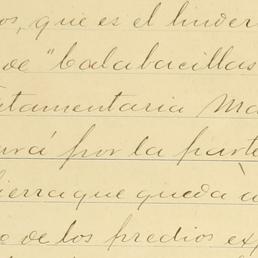 os, que es el linder
de "Calabacillas
stamentaria Ma
urá por la parte
ierra que queda à
o de los predios ex